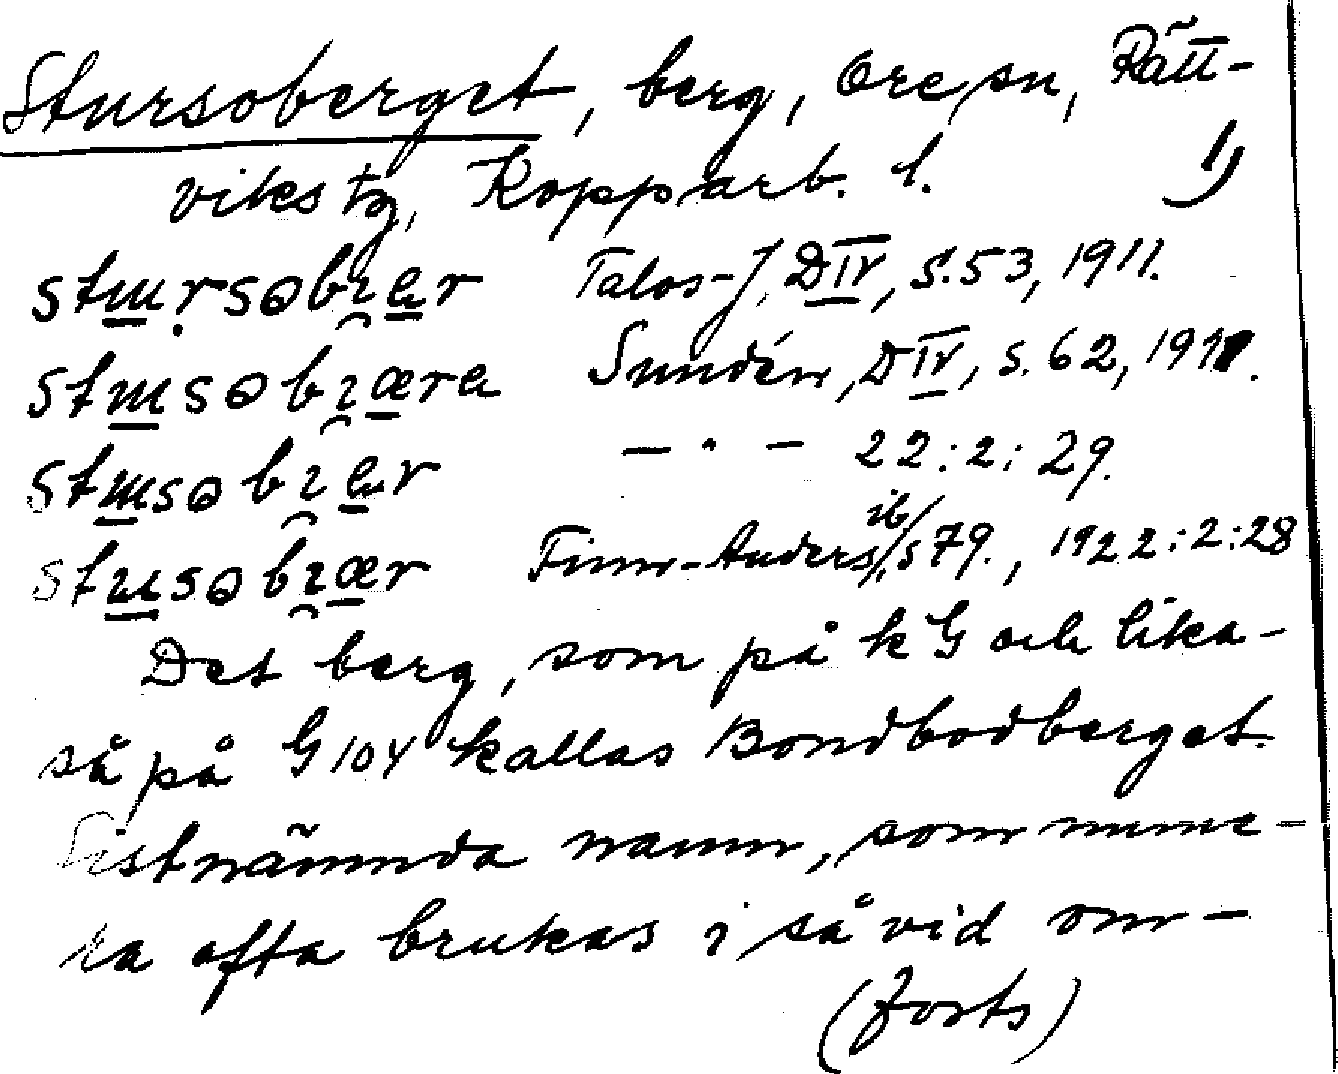 Stursoberget, berg, Ore sn, Rätt-
viks tg, Kopparb. l. 1)
stɯrsobɿær Talos-J, DIV, s. 53, 1911.
stɯsobɿæra Sundén, DIV, s. 62, 1911.
stɯsobɿær — " — 22:2:29.
stusobɿær Finn-Anders, ib/s 79., 1922:2:28
Det berg, som på kG och lika-
så på G104 kallas Bondbodberget.
Sistnämnda namn, som nume-
ra ofta brukas i så vid om-
(forts)